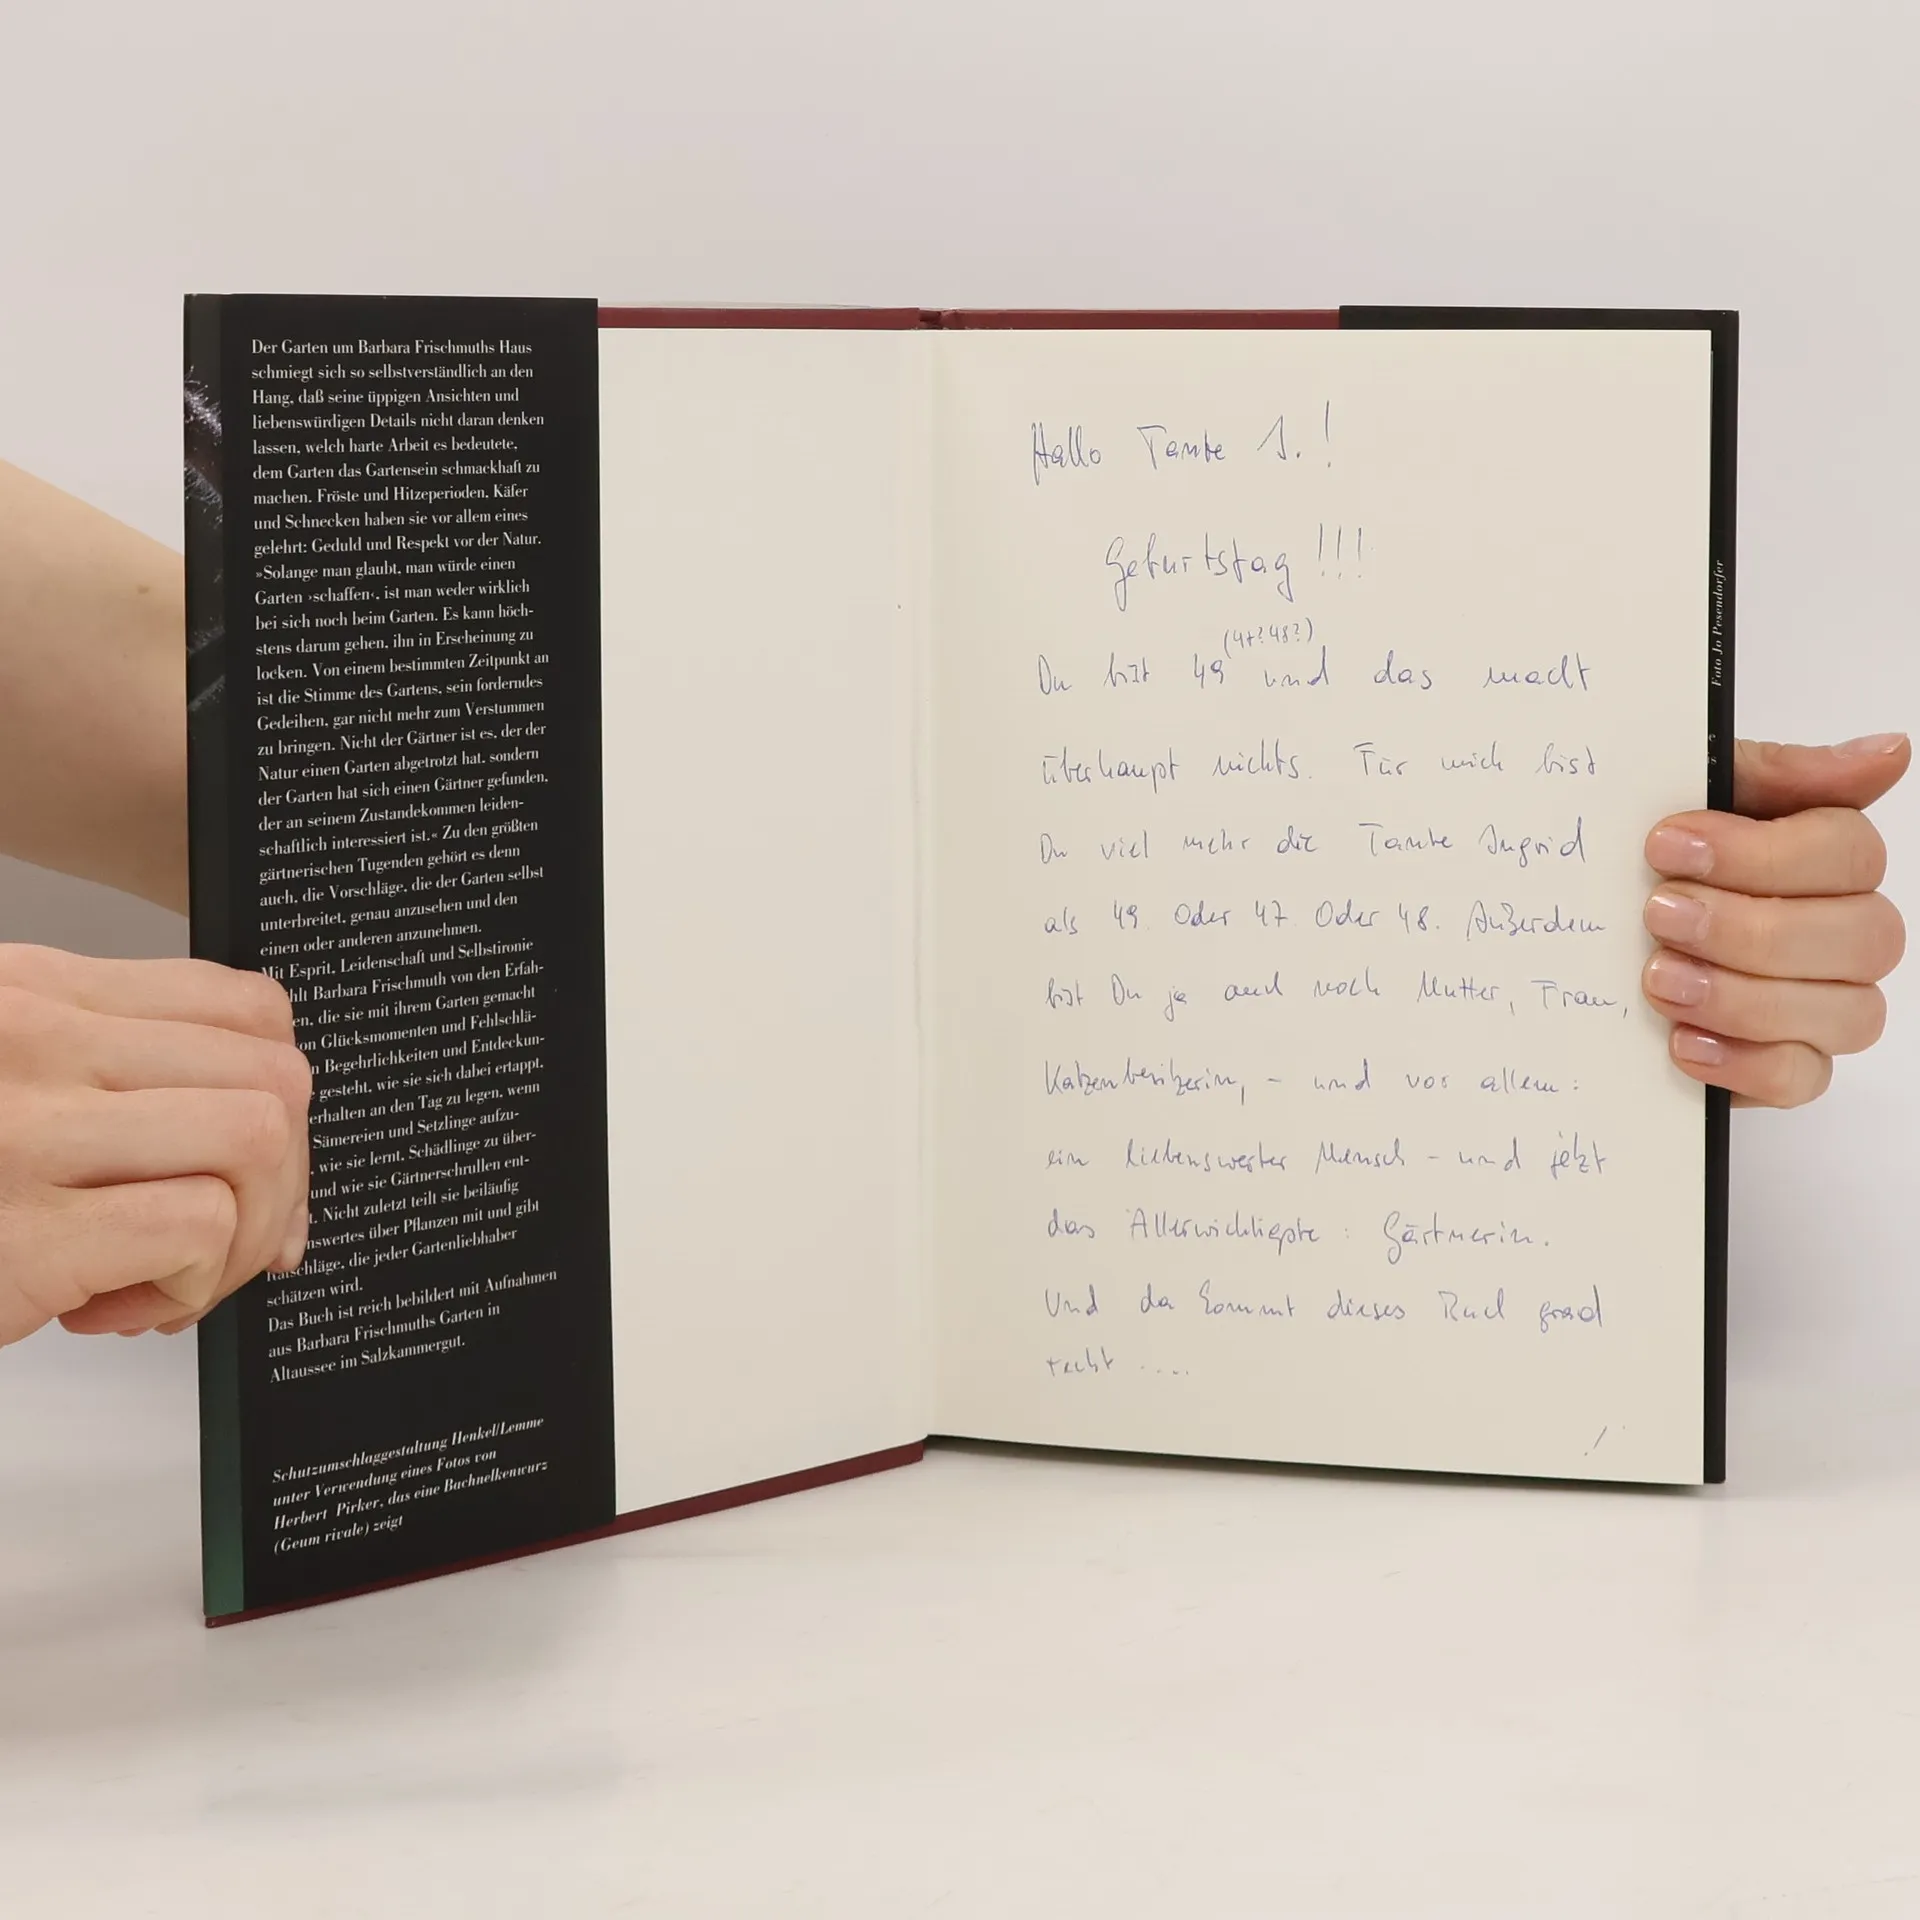 Der Garten um Barbara Frischmuths Haus
schmiegt sich so selbstverständlich an den
Hang, daß seine üppigen Ansichten und
liebenswürdigen Details nicht daran denken
lassen, welch harte Arbeit es bedeutete,
dem Garten das Gartensein schmackhaft zu
machen. Fröste und Hitzeperioden, Käfer
und Schnecken haben sie vor allem eines
gelehrt: Geduld und Respekt vor der Natur.
»Solange man glaubt, man würde einen
Garten ›schaffen‹, ist man weder wirklich
bei sich noch beim Garten. Es kann höch-
stens darum gehen, ihn in Erscheinung zu
locken. Von einem bestimmten Zeitpunkt an
ist die Stimme des Gartens, sein forderndes
Gedeihen, gar nicht mehr zum Verstummen
zu bringen. Nicht der Gärtner ist es, der der
Natur einen Garten abgetrotzt hat, sondern
der Garten hat sich einen Gärtner gefunden,
der an seinem Zustandekommen leiden-
schaftlich interessiert ist.« Zu den größten
gärtnerischen Tugenden gehört es denn
auch, die Vorschläge, die der Garten selbst
unterbreitet, genau anzusehen und den
einen oder anderen anzunehmen.
Mit Esprit, Leidenschaft und Selbstironie
hlt Barbara Frischmuth von den Erfah-
en, die sie mit ihrem Garten gemacht
on Glücksmomenten und Fehlschlä-
n Begehrlichkeiten und Entdeckun-
gesteht, wie sie sich dabei ertappt,
erhalten an den Tag zu legen, wenn
Sämereien und Setzlinge aufzu-
, wie sie lernt, Schädlinge zu über-
und wie sie Gärtnerschrullen ent-
t. Nicht zuletzt teilt sie beiläufig
nswertes über Pflanzen mit und gibt
Ratschläge, die jeder Gartenliebhaber
schätzen wird.
Das Buch ist reich bebildert mit Aufnahmen
aus Barbara Frischmuths Garten in
Altaussee im Salzkammergut.
Schutzumschlaggestaltung Henkel/Lemme
unter Verwendung eines Fotos von
Herbert Pirker, das eine Bachnelkenwurz
(Geum rivale) zeigt
Hallo Tante I.!
Geburtstag !!!
(47? 48?)
Du bist 49 und das macht
überhaupt nichts. Für mich bist
Du viel mehr die Tante Ingrid
als 49. Oder 47. Oder 48. Außerdem
bist Du ja auch noch Mutter, Frau,
Katzenbesitzerin, – und vor allem:
ein liebenswerter Mensch – und jetzt
das Allerwichtigste: Gärtnerin.
Und da kommt dieses Buch grad
recht .....
!
Foto Jo Pesendorfer